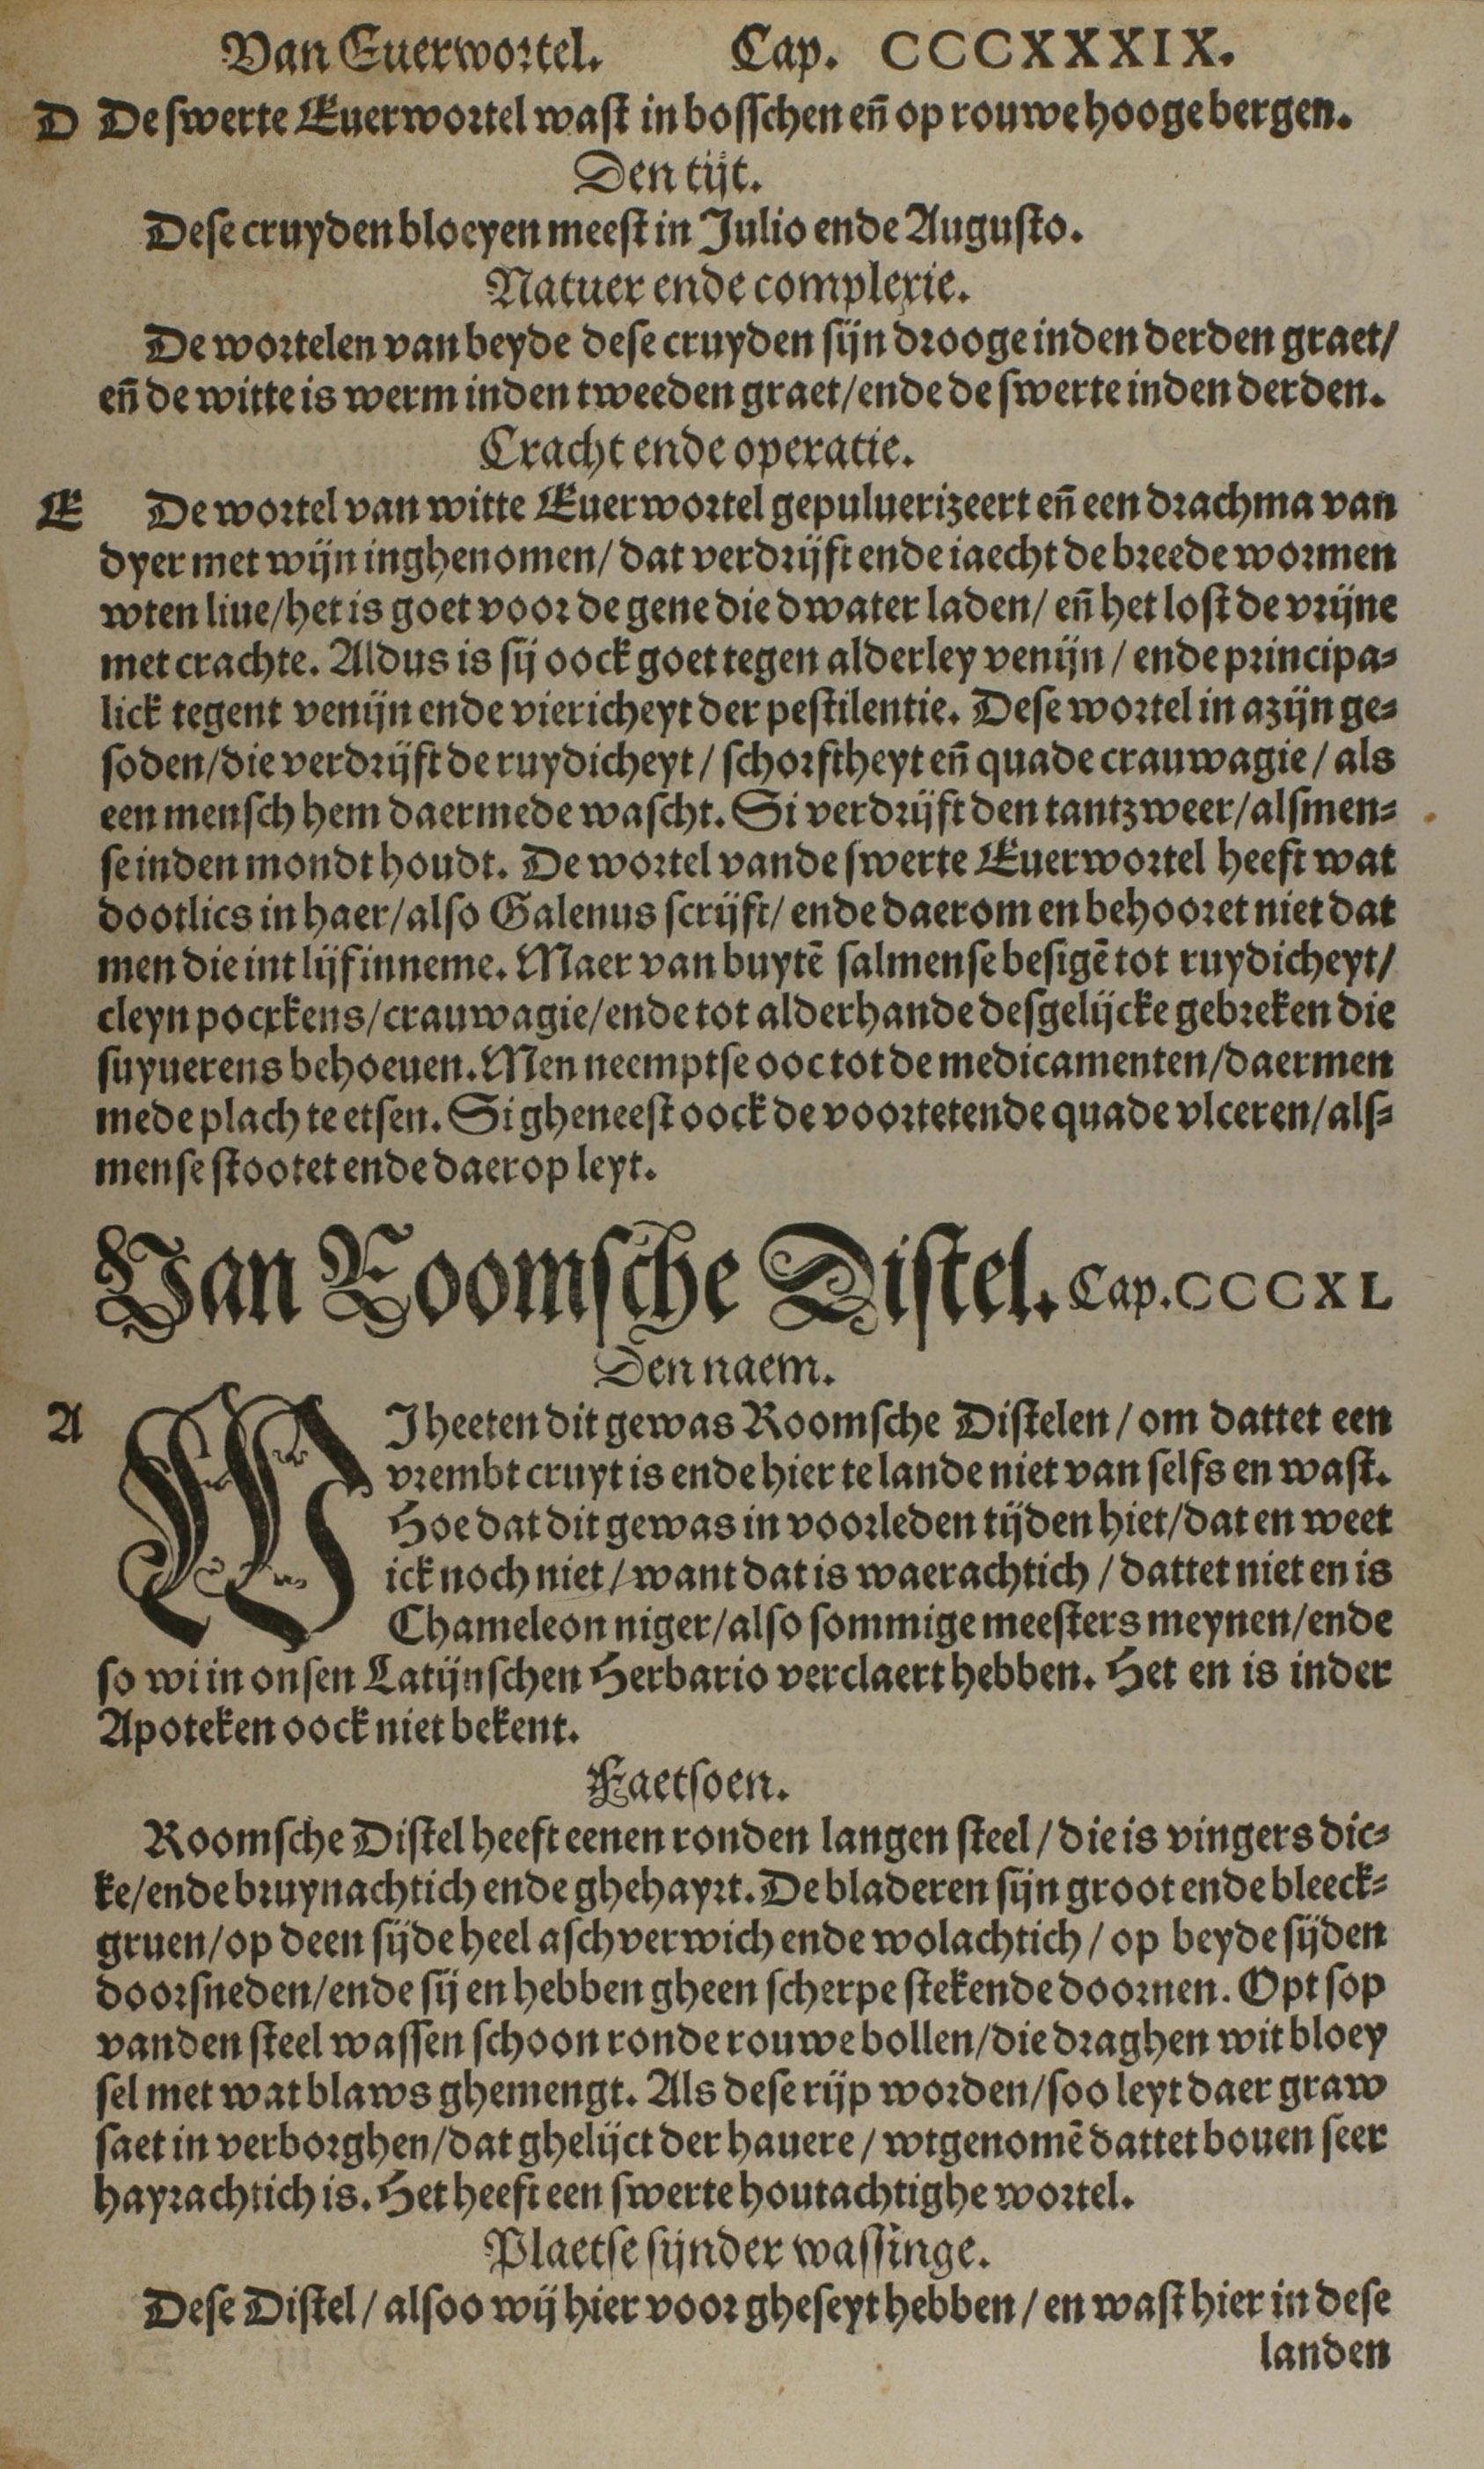 Van Euerwortel. Cap. CCCXXXIX.
D De swerte Euerwortel wast in bosschen en̄ op rouwe hooge bergen.
Den tijt.
Dese cruyden bloeyen meest in Julio ende Augusto.
Natuer ende complexie.
De wortelen van beyde dese cruyden sijn drooge inden derden graet/
en̄ de witte is werm inden tweeden graet/ende de swerte inden derden.
Cracht ende operatie.
E De wortel van witte Euerwortel gepuluerizeert en̄ een drachma van
dyer met wijn inghenomen/ dat verdrijft ende iaecht de breede wormen
wten liue/het is goet voor de gene die dwater laden/ en̄ het lost de vrijne
met crachte. Aldus is sij oock goet tegen alderley venijn / ende principa-
lick tegent venijn ende viericheyt der pestilentie. Dese wortel in azijn ge-
soden/die verdrijft de ruydicheyt / schorftheyt en̄ quade crauwagie / als
een mensch hem daermede wascht. Si verdrijft den tantzweer/alsmen-
se inden mondt houdt. De wortel vande swerte Euerwortel heeft wat
dootlics in haer/also Galenus scrijft/ ende daerom en behooret niet dat
men die int lijf inneme. Maer van buytē salmense besigē tot ruydicheyt/
cleyn pocxkens/crauwagie/ende tot alderhande desgelijcke gebreken die
suyuerens behoeuen. Men neemptse ooc tot de medicamenten/daermen
mede plach te etsen. Si gheneest oock de voortetende quade vlceren/als-
mense stootet ende daerop leyt.
Van Roomsche Distel. Cap. CCCXL
Den naem.
A WJ heeten dit gewas Roomsche Distelen / om dattet een
vrembt cruyt is ende hier te lande niet van selfs en wast.
Hoe dat dit gewas in voorleden tijden hiet/dat en weet
ick noch niet / want dat is waerachtich / dattet niet en is
Chameleon niger/also sommige meesters meynen/ende
so wi in onsen Latijnschen Herbario verclaert hebben. Het en is inder
Apoteken oock niet bekent.
Faetsoen.
Roomsche Distel heeft eenen ronden langen steel / die is vingers dic-
ke/ende bruynachtich ende ghehayrt. De bladeren sijn groot ende bleeck-
gruen/op deen sijde heel aschverwich ende wolachtich / op beyde sijden
doorsneden/ende sij en hebben gheen scherpe stekende doornen. Opt sop
vanden steel wassen schoon ronde rouwe bollen/die draghen wit bloey
sel met wat blaws ghemengt. Als dese rijp worden/soo leyt daer graw
saet in verborghen/dat ghelijct der hauere / wtgenomē dattet bouen seer
hayrachtich is. Het heeft een swerte houtachtighe wortel.
Plaetse sijnder wassinge.
Dese Distel / alsoo wij hier voor gheseyt hebben / en wast hier in dese
landen